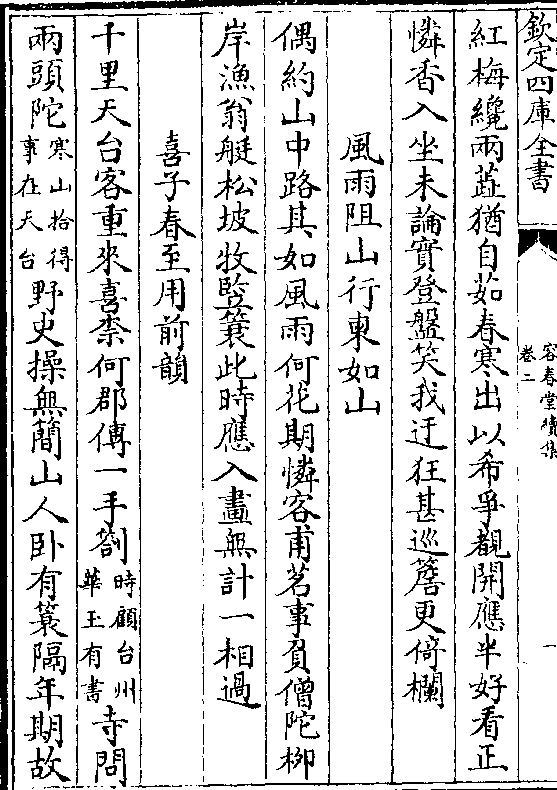 欽定四庫全書
容春堂續集
卷二
一
紅梅纔兩蕋猶自茹春寒出以希爭覩開應半好看正
憐香入坐未論實登盤笑我迂狂甚巡簷更倚欄
風雨阻山行東如山
偶約山中路其如風雨何花期憐容甫茗事負僧陀栁
岸漁翁艇松坡牧豎蓑此時應入畫無計一相過
喜子春至用前韻
千里天台客重來喜柰何郡傳一手劄時顧台州華王有書寺問
兩頭陀寒山拾得事在天台野史操無簡山人卧有蓑隔年期故